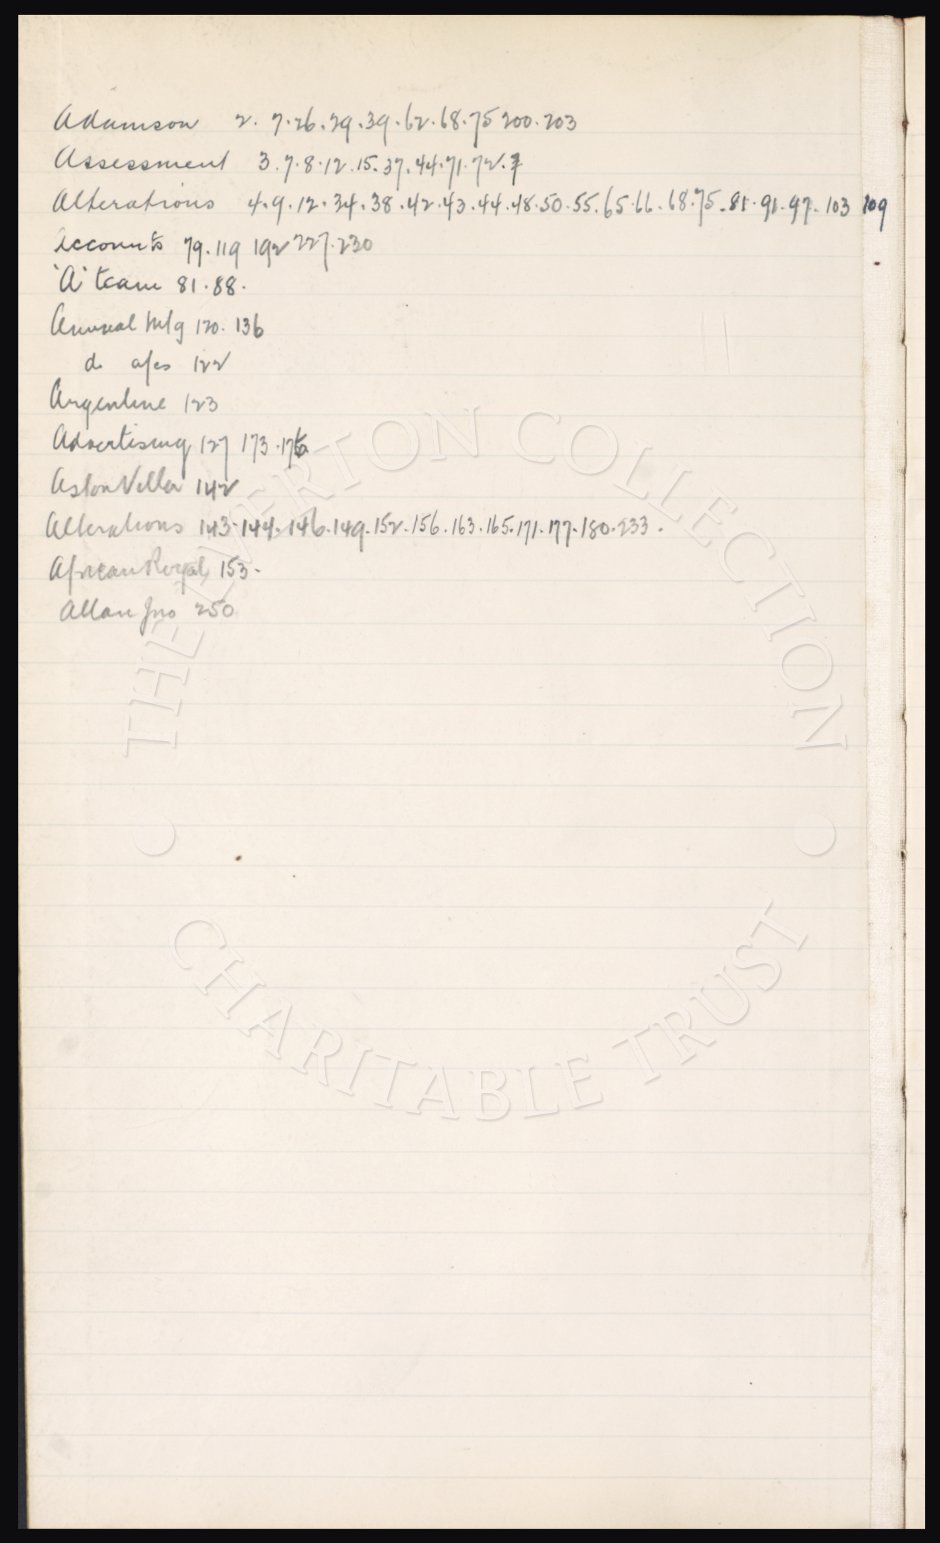 Adamson 2. 7. 26. 29. 39. 62. 68. 75 200. 203
Assessment 3. 7. 8. 12. 15. 37. 44. 71. 72.
Alterations 4. 9. 12. 34. 38. 42. 43. 44. 48. 50. 55. 65. 66. 68. 75. 81. 91. 97. 103 109
Accounts 79. 119 192 227. 230
'A' team 81. 88.
Annual Mtg 120. 136
do 122
Argentine 123
Advertising 127 173.
Aston Villa 142
Alterations 143. 144. 146. 149. 152. 156. 163. 165. 171. 177. 180. 233.
African Royal 153.
Allan Jno 250
THE EVERTON COLLECTION
CHARITABLE TRUST